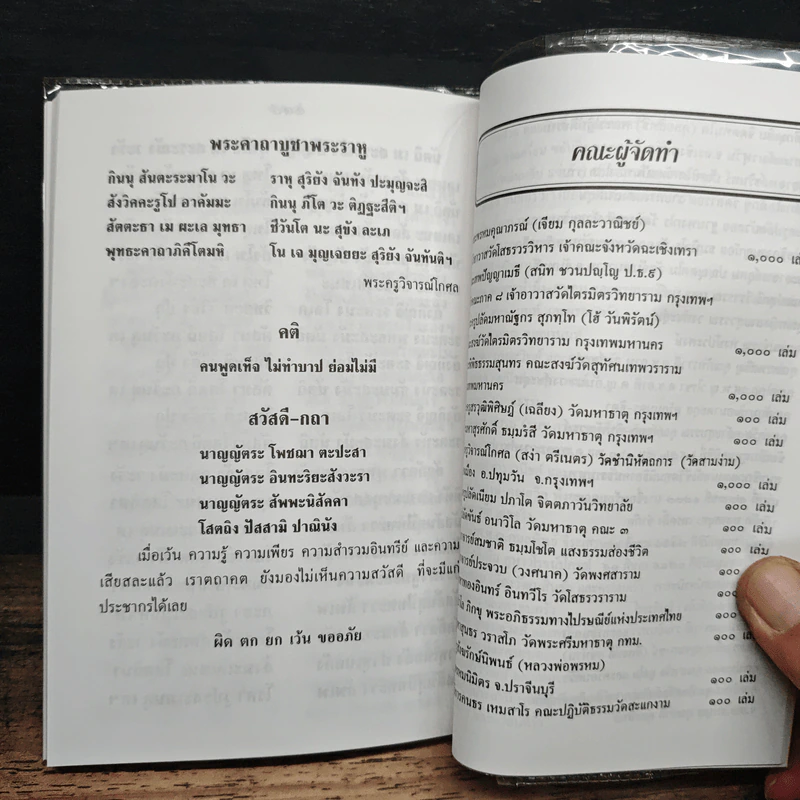 พระคาถาบูชาพระราหู
กินนุ สันตะระมาโน วะ ราหุ สุริยัง จันทัง ปะมุญจะสิ
สังวิคคะรูโป อาคัมมะ กินนุ ภีโต วะ ติฏฐะสีติฯ
สัตตะธา เม ผะเล มุทธา ชีวันโต นะ สุขัง ละเภ
พุทธะคาถาภิคีโตมหิ โน เจ มุญเจยยะ สุริยัง จันทันติฯ
พระครูวิจารณ์โกศล
คติ
คนพูดเท็จ ไม่ทำบาป ย่อมไม่มี
สวัสดี-กถา
นาญญัตระ โพชฌา ตะปะสา
นาญญัตระ อินทะริยะสังวะรา
นาญญัตระ สัพพะนิสัคคา
โสตถิง ปัสสามิ ปาณินัง
เมื่อเว้น ความรู้ ความเพียร ความสำรวมอินทรีย์ และความ
เสียสละแล้ว เราตถาคต ยังมองไม่เห็นความสวัสดี ที่จะมีแก่
ประชากรได้เลย
ผิด ตก ยก เว้น ขออภัย
คณะผู้จัดทำ
พระพรหมคุณาภรณ์ (เจียม กุลละวาณิชย์)
อาวาสวัดโสธรวรวิหาร เจ้าคณะจังหวัดฉะเชิงเทรา ๑,๐๐๐ เล่ม
เทพปัญญาเมธี (สนิท ชวนปญฺโญ ป.ธ.๙)
คณะภาค ๘ เจ้าอาวาสวัดไตรมิตรวิทยาราม กรุงเทพฯ
ครูปลัดมหาณัฐกร สุภทฺโท (โฮ้ วันพิรัตน์)
สงฆ์วัดไตรมิตรวิทยาราม กรุงเทพมหานคร ๑,๐๐๐ เล่ม
พิธีธรรมสุนทร คณะสงฆ์วัดสุทัศนเทพวราราม
เทพมหานคร ๑,๐๐๐ เล่ม
สุวรวุฒิพิศิษฎ์ (เฉลียง) วัดมหาธาตุ กรุงเทพฯ ๑๐๐ เล่ม
หาสุรศักดิ์ ธมฺมรํสี วัดมหาธาตุ กรุงเทพฯ ๑๐๐ เล่ม
วิจารณ์โกศล (สง่า ตรีเนตร) วัดชำนิหัตถการ (วัดสามง่าม)
เมือง อ.ปทุมวัน จ.กรุงเทพฯ ๑,๐๐๐ เล่ม
ปลัดเนียม ปภาโต จิตตภาวันวิทยาลัย ๑๐๐ เล่ม
พันธ์ อนาวิโล วัดมหาธาตุ คณะ ๓ ๑๐๐ เล่ม
จารย์สมชาติ ธมฺมโชโต แสงธรรมส่องชีวิต ๑๐๐ เล่ม
จารย์ประจวบ (วงศนาค) วัดพงศสาราม ๑๐๐
ทองอินทร์ อินทวีโร วัดโสธรวราราม ๑๐๐
ภิกขุ พระอภิธรรมทางไปรษณีย์แห่งประเทศไทย
สุนธร วราสโภ วัดพระศรีมหาธาตุ กทม. ๑๐๐
รักษ์นิพนธ์ (หลวงพ่อพรหม)
พรหมนิมิตร จ.ปราจีนบุรี ๑๐๐ เล่ม
คนธร เหมสาโร คณะปฏิบัติธรรมวัดสะแกงาม ๑๐๐ เล่ม